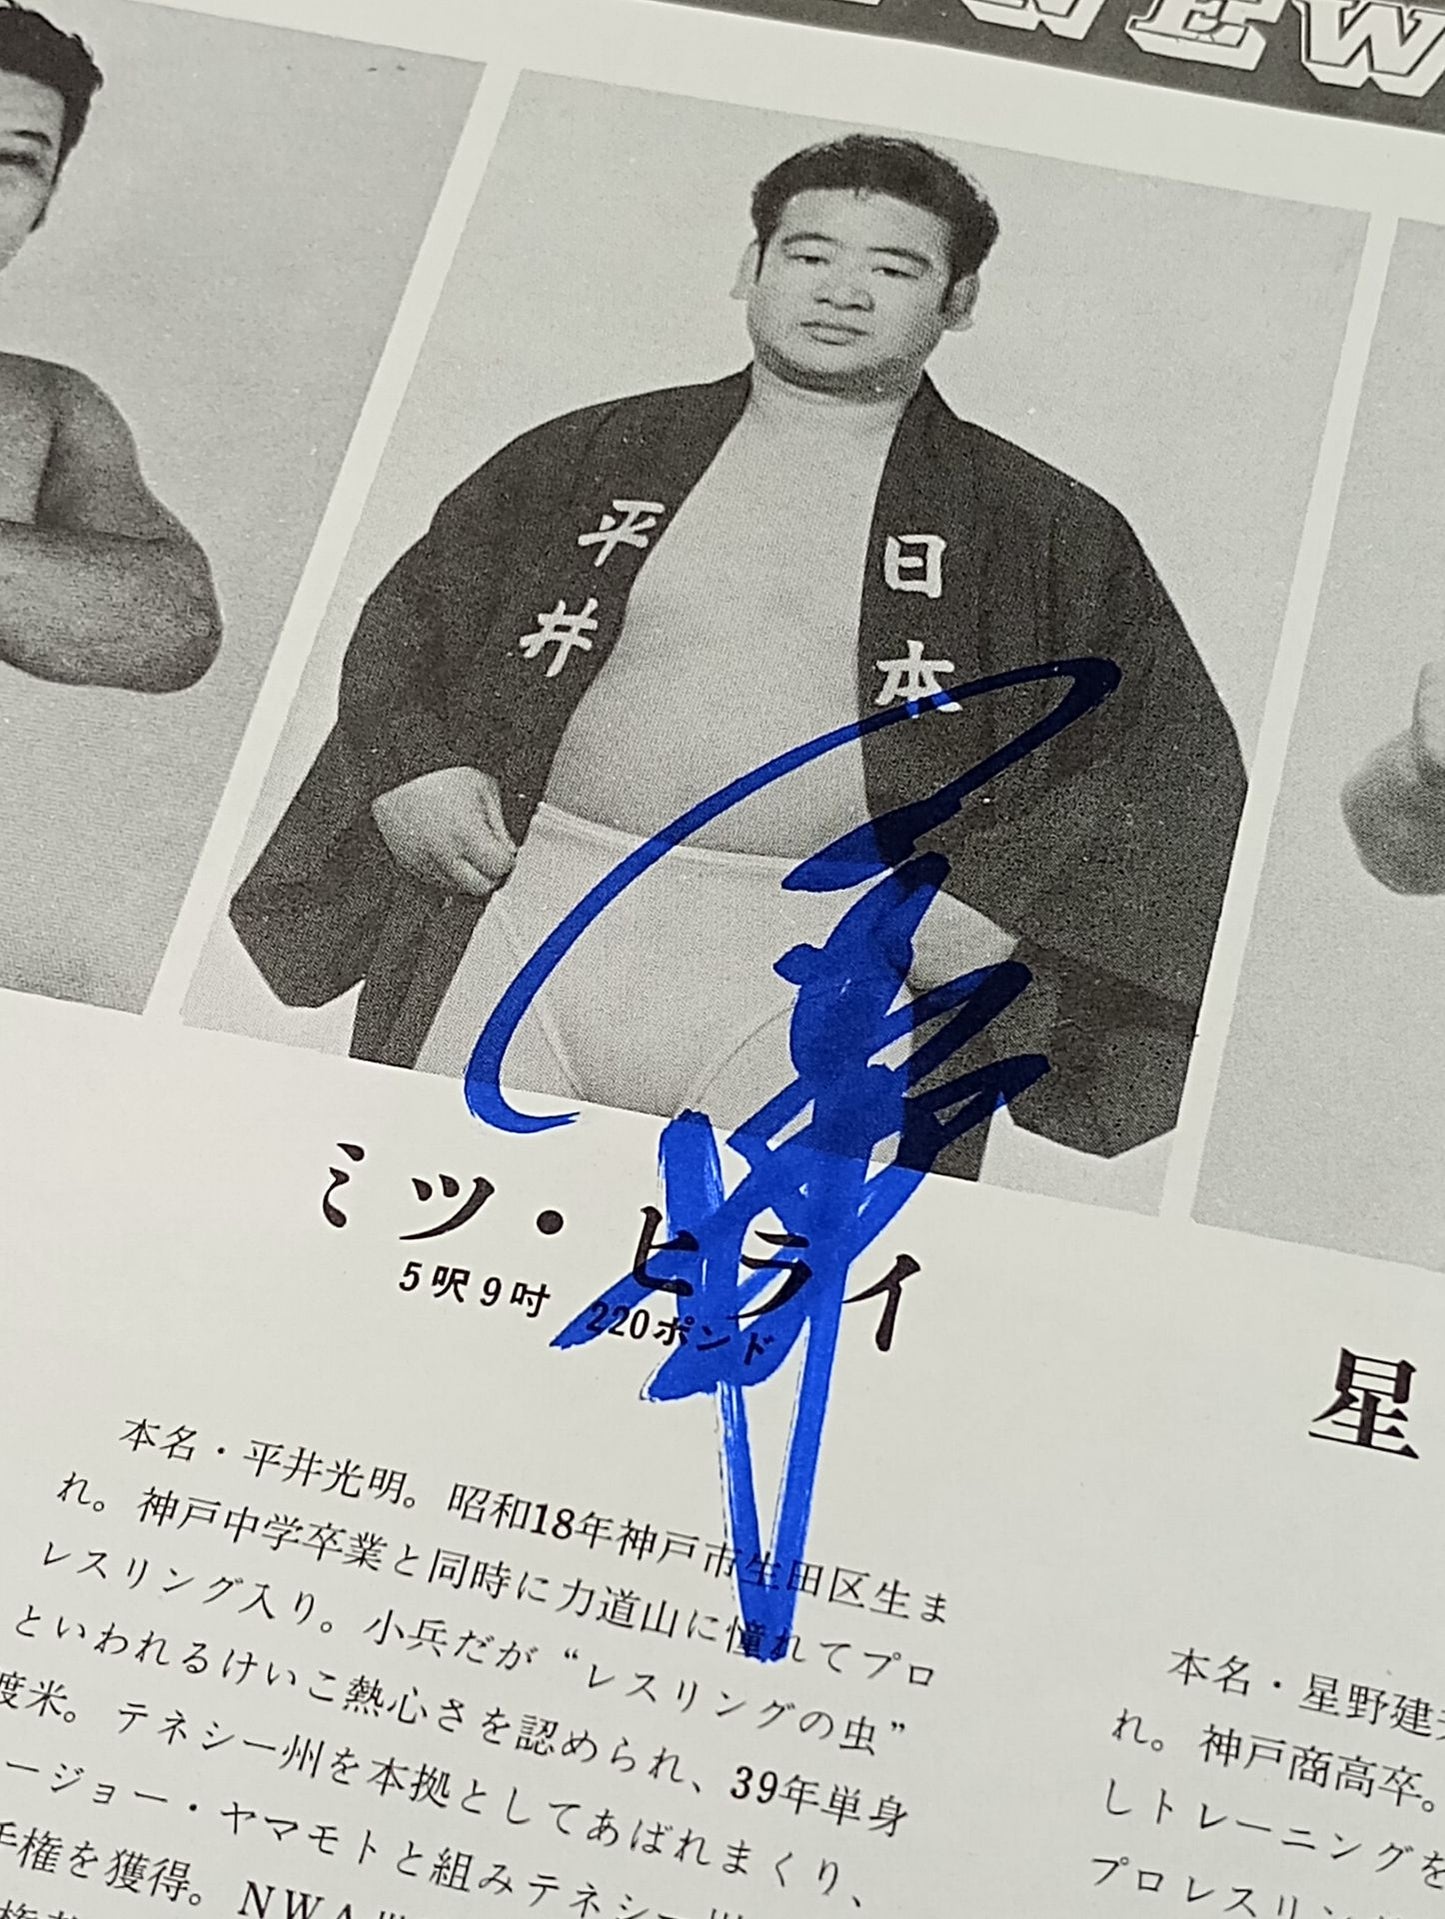 NEW
平井
日本
ミツ・ヒライ
5呎9吋 220ポンド
本名・平井光明。昭和18年神戸市生田区生ま
れ。神戸中学卒業と同時に力道山に憧れてプロ
レスリング入り。小兵だが“レスリングの虫”
といわれるけいこ熱心さを認められ、39年単身
度米。テネシー州を本拠としてあばれまくり、
ージョー・ヤマモトと組みテネシー州
手権を獲得。NWA世
星
本名・星野建
れ。神戸商高卒。
しトレーニングを
プロレスリン